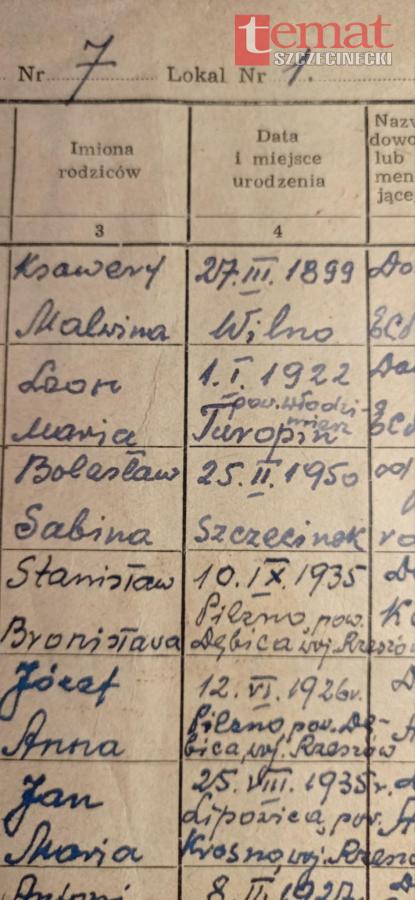 temat
SZCZECINECKI
Nr 7 Lokal Nr 1.
Imiona
rodziców
Data
i miejsce
urodzenia
Nazw
dowo
lub
men
jące
3
4
Ksawery 27.III.1899 Do
Malwina Wilno
Leon 1.I.1922
pow. Włodzi-
mierz
Maria Turopin
Bolesław 25.II.1950 od
Sabina Szczecinek
Stanisław 10.IX.1935
Pilzno, pow.
Bronisława Dębica, woj. Rzeszów
Józef 12.VI.1926r.
Pilzno, pow. Dę-
Anna bica, woj. Rzeszów
Jan 25.VIII.1935r.
Lipowica, pow.
Maria Krosno, woj. Rzeszó
Antoni 8.II.1927.